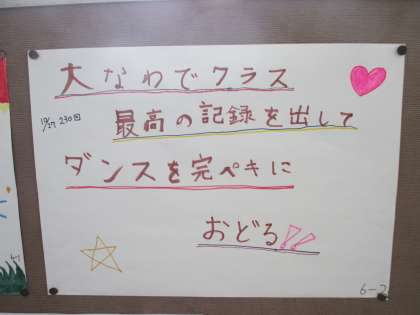 大なわでクラス
10/27 230回
最高の記録を出して
ダンスを完ペキに
おどる!!
6-2